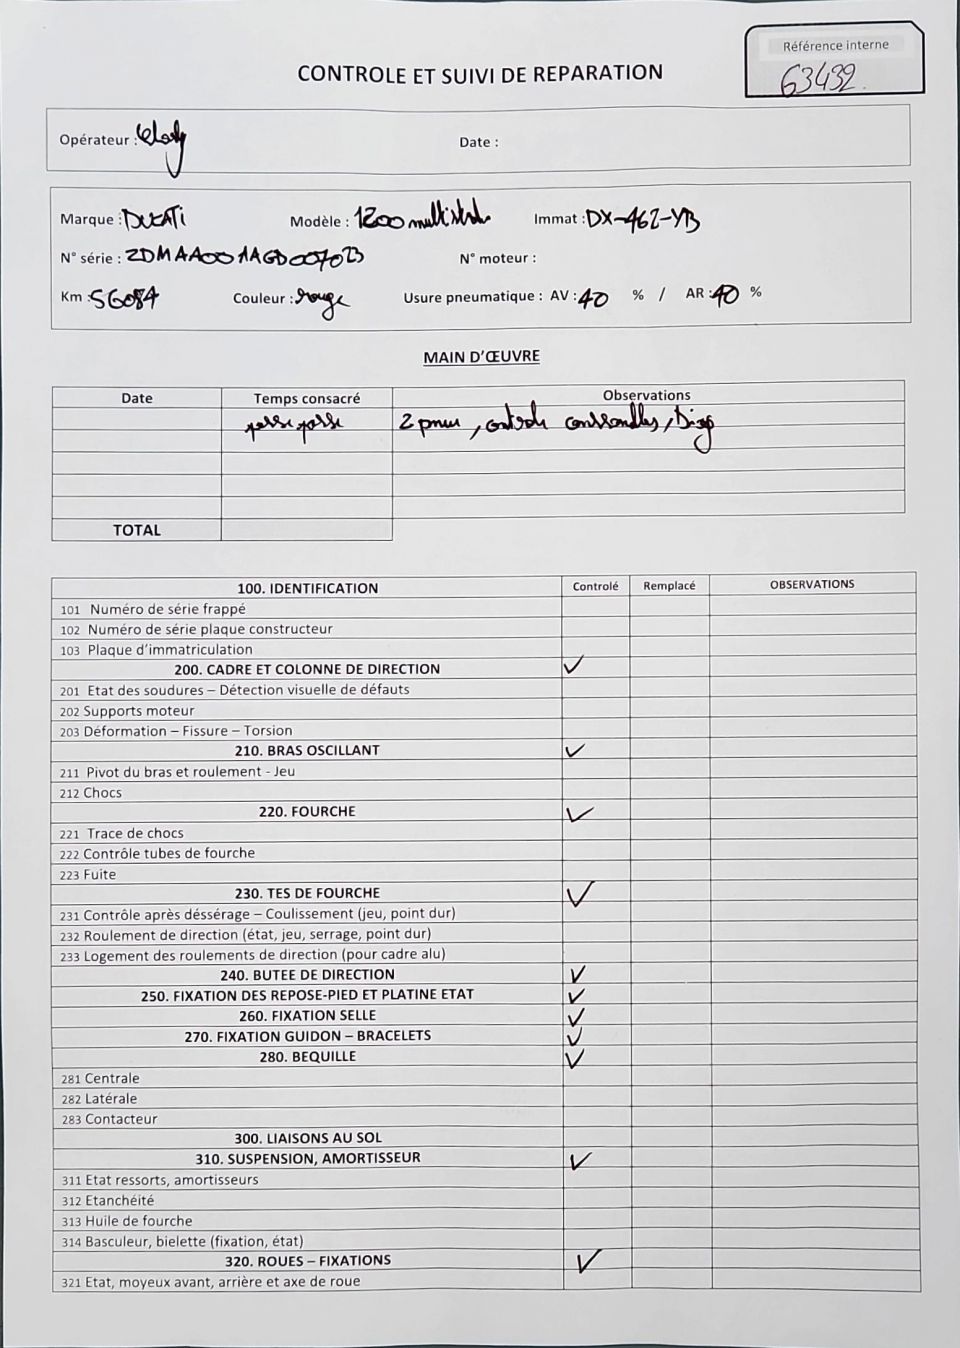 Référence interne
63432
CONTROLE ET SUIVI DE REPARATION
Opérateur : Date :
Marque : DUCATI Modèle : 1200 multistrada Immat : DX-462-YB
N° série : ZDMAA00AAGD007023 N° moteur :
Km : 56084 Couleur : rouge Usure pneumatique : AV : 40 % / AR : 40 %
MAIN D'ŒUVRE
Date Temps consacré Observations
passe passe 2 pneus, controle consommables, Diag
TOTAL
100. IDENTIFICATION Controlé Remplacé OBSERVATIONS
101 Numéro de série frappé
102 Numéro de série plaque constructeur
103 Plaque d'immatriculation
200. CADRE ET COLONNE DE DIRECTION ✓
201 Etat des soudures – Détection visuelle de défauts
202 Supports moteur
203 Déformation – Fissure – Torsion
210. BRAS OSCILLANT ✓
211 Pivot du bras et roulement - Jeu
212 Chocs
220. FOURCHE ✓
221 Trace de chocs
222 Contrôle tubes de fourche
223 Fuite
230. TES DE FOURCHE ✓
231 Contrôle après déssérage – Coulissement (jeu, point dur)
232 Roulement de direction (état, jeu, serrage, point dur)
233 Logement des roulements de direction (pour cadre alu)
240. BUTEE DE DIRECTION ✓
250. FIXATION DES REPOSE-PIED ET PLATINE ETAT ✓
260. FIXATION SELLE ✓
270. FIXATION GUIDON – BRACELETS ✓
280. BEQUILLE ✓
281 Centrale
282 Latérale
283 Contacteur
300. LIAISONS AU SOL
310. SUSPENSION, AMORTISSEUR ✓
311 Etat ressorts, amortisseurs
312 Etanchéité
313 Huile de fourche
314 Basculeur, bielette (fixation, état)
320. ROUES – FIXATIONS ✓
321 Etat, moyeux avant, arrière et axe de roue